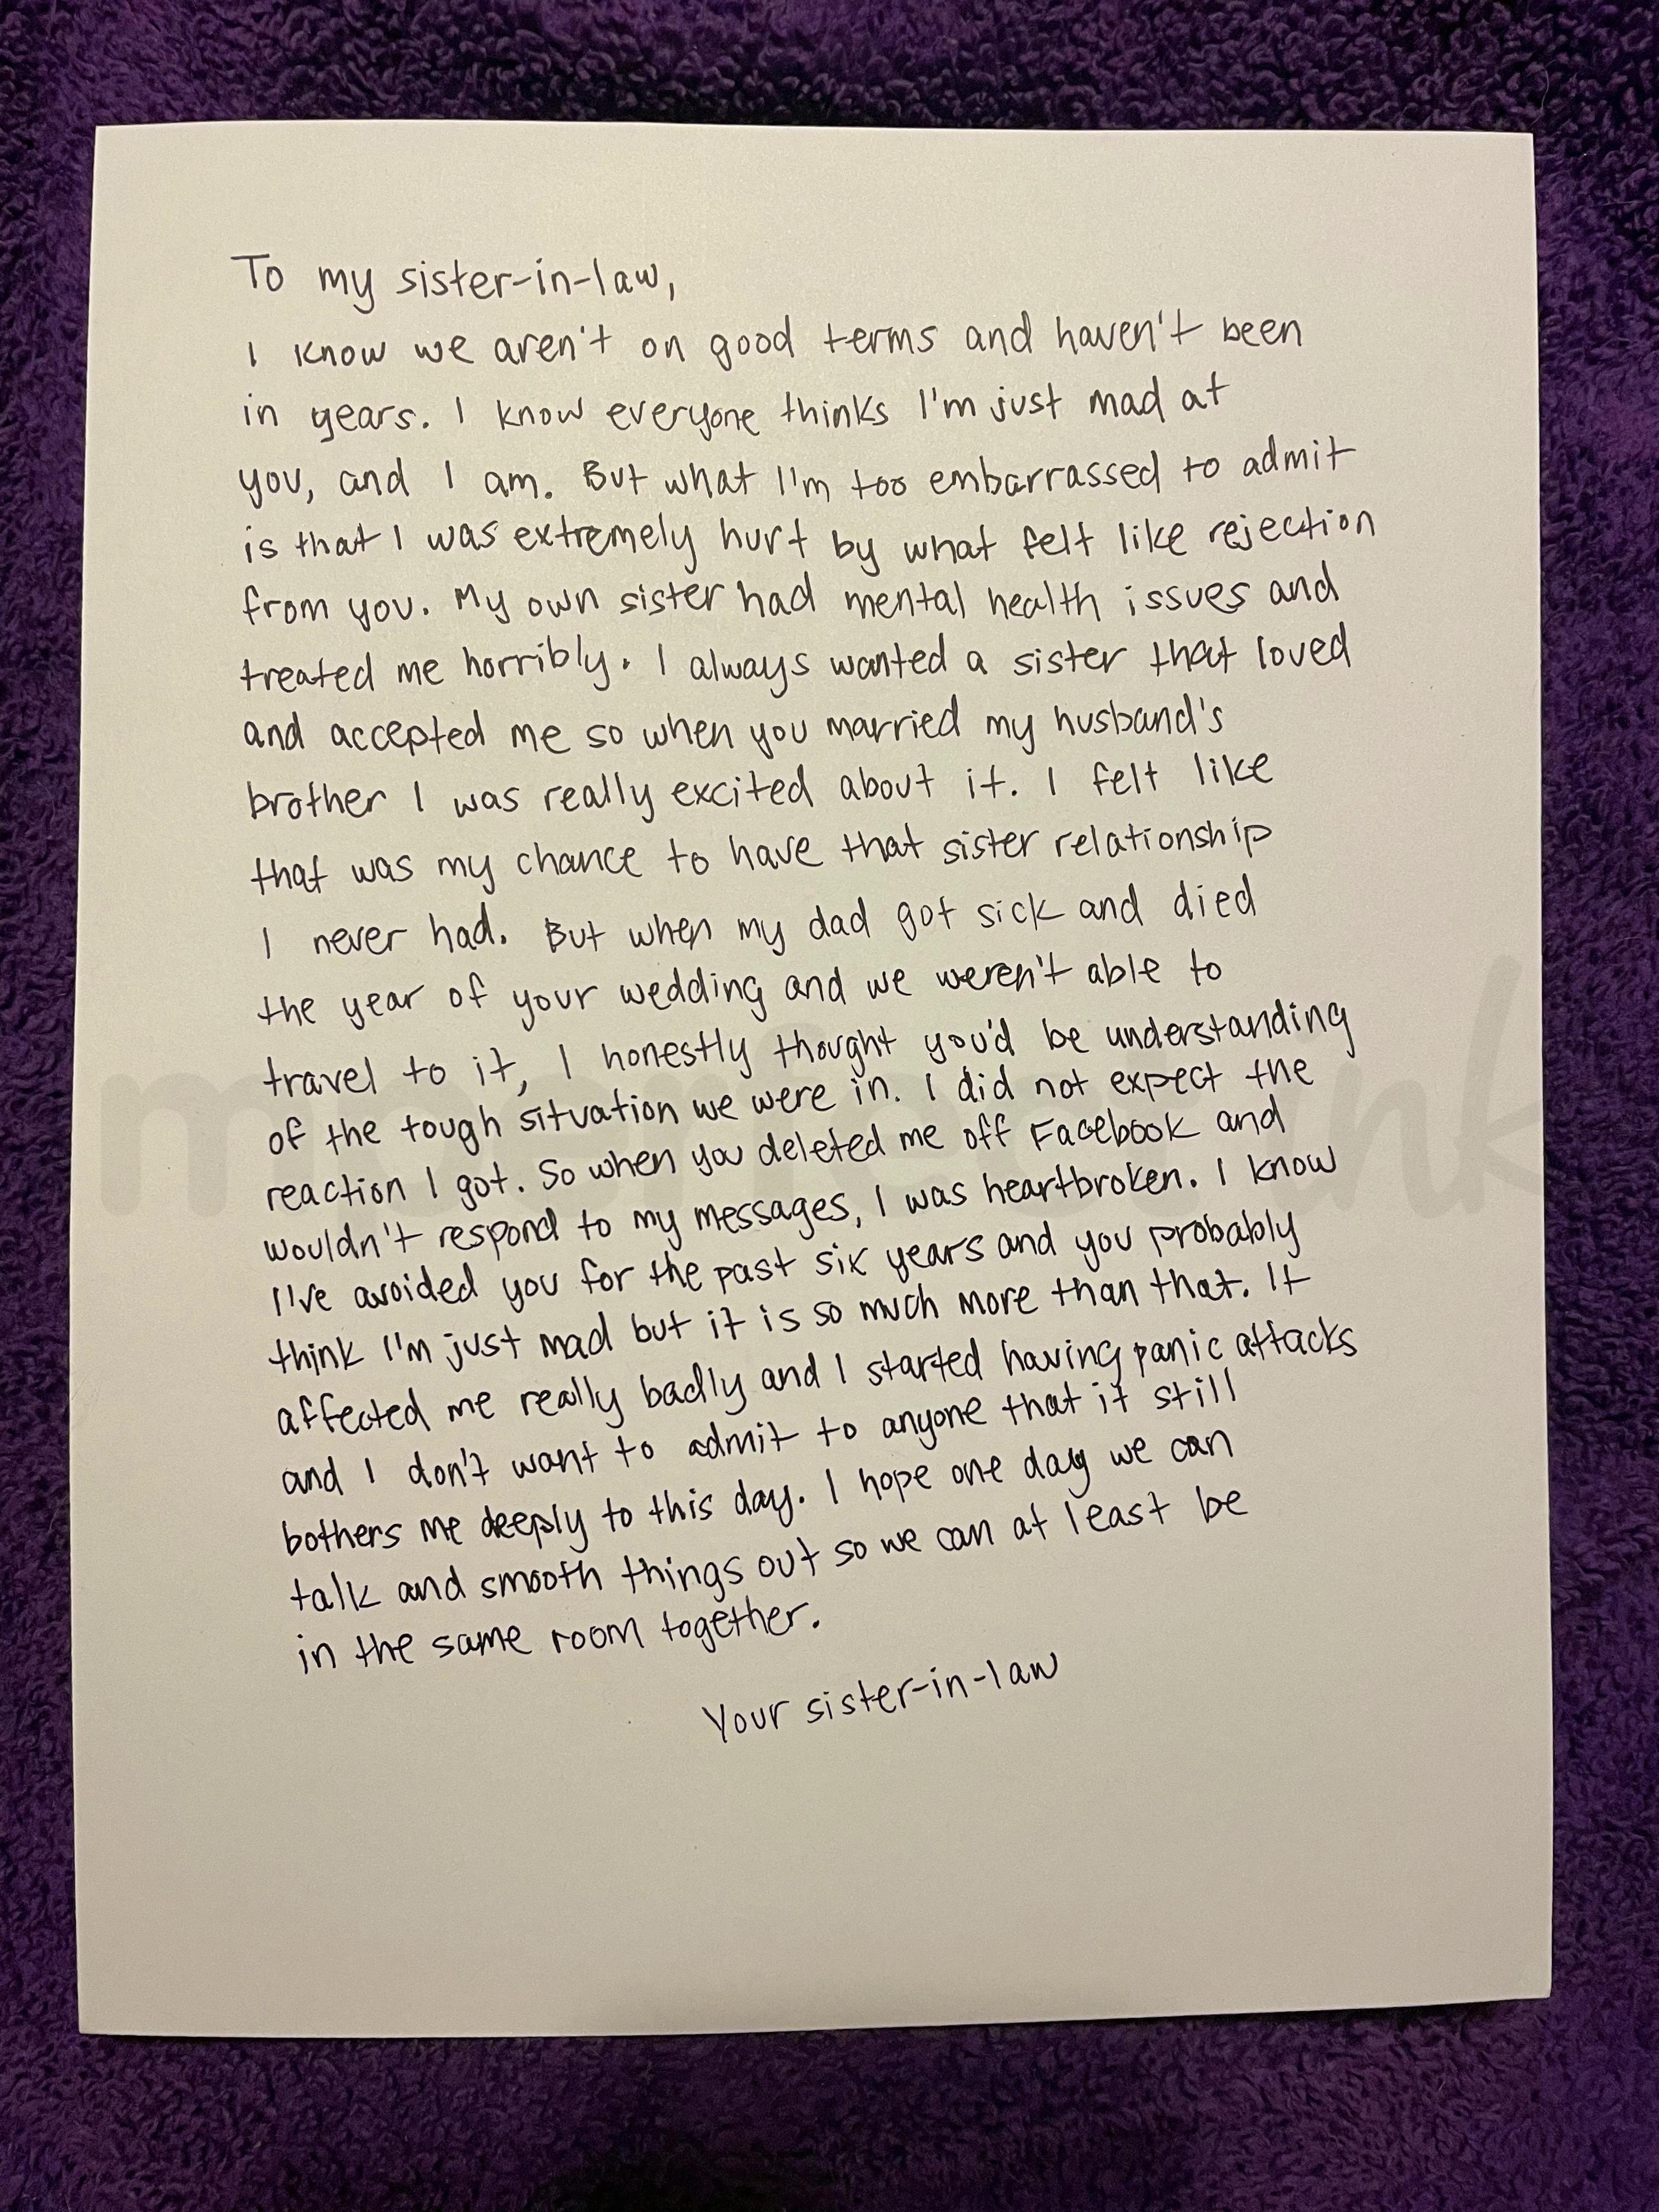 To my sister-in-law,
I know we aren't on good terms and haven't been
in years. I know everyone thinks I'm just mad at
you, and I am. But what I'm too embarrassed to admit
is that I was extremely hurt by what felt like rejection
from you. My own sister had mental health issues and
treated me horribly. I always wanted a sister that loved
and accepted me so when you married my husband's
brother I was really excited about it. I felt like
that was my chance to have that sister relationship
I never had. But when my dad got sick and died
the year of your wedding and we weren't able to
travel to it, I honestly thought you'd be understanding
of the tough situation we were in. I did not expect the
reaction I got. So when you deleted me off Facebook and
wouldn't respond to my messages, I was heartbroken. I know
I've avoided you for the past six years and you probably
think I'm just mad but it is so much more than that. It
affected me really badly and I started having panic attacks
and I don't want to admit to anyone that it still
bothers me deeply to this day. I hope one day we can
talk and smooth things out so we can at least be
in the same room together.
Your sister-in-law